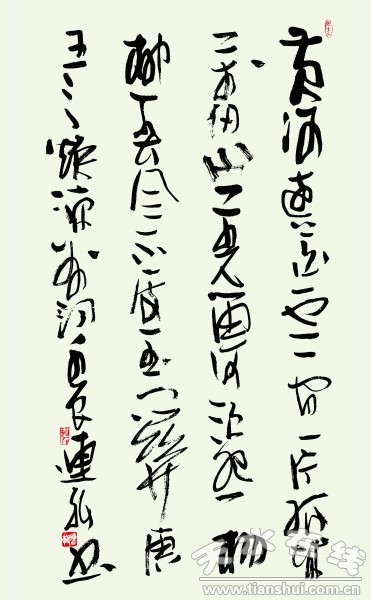 黄河遠上白云间一片孤城
万仞山羌笛何须怨杨
柳春风不度玉门关唐
王之涣凉州词
天水在线
www.tianshui.com.cn